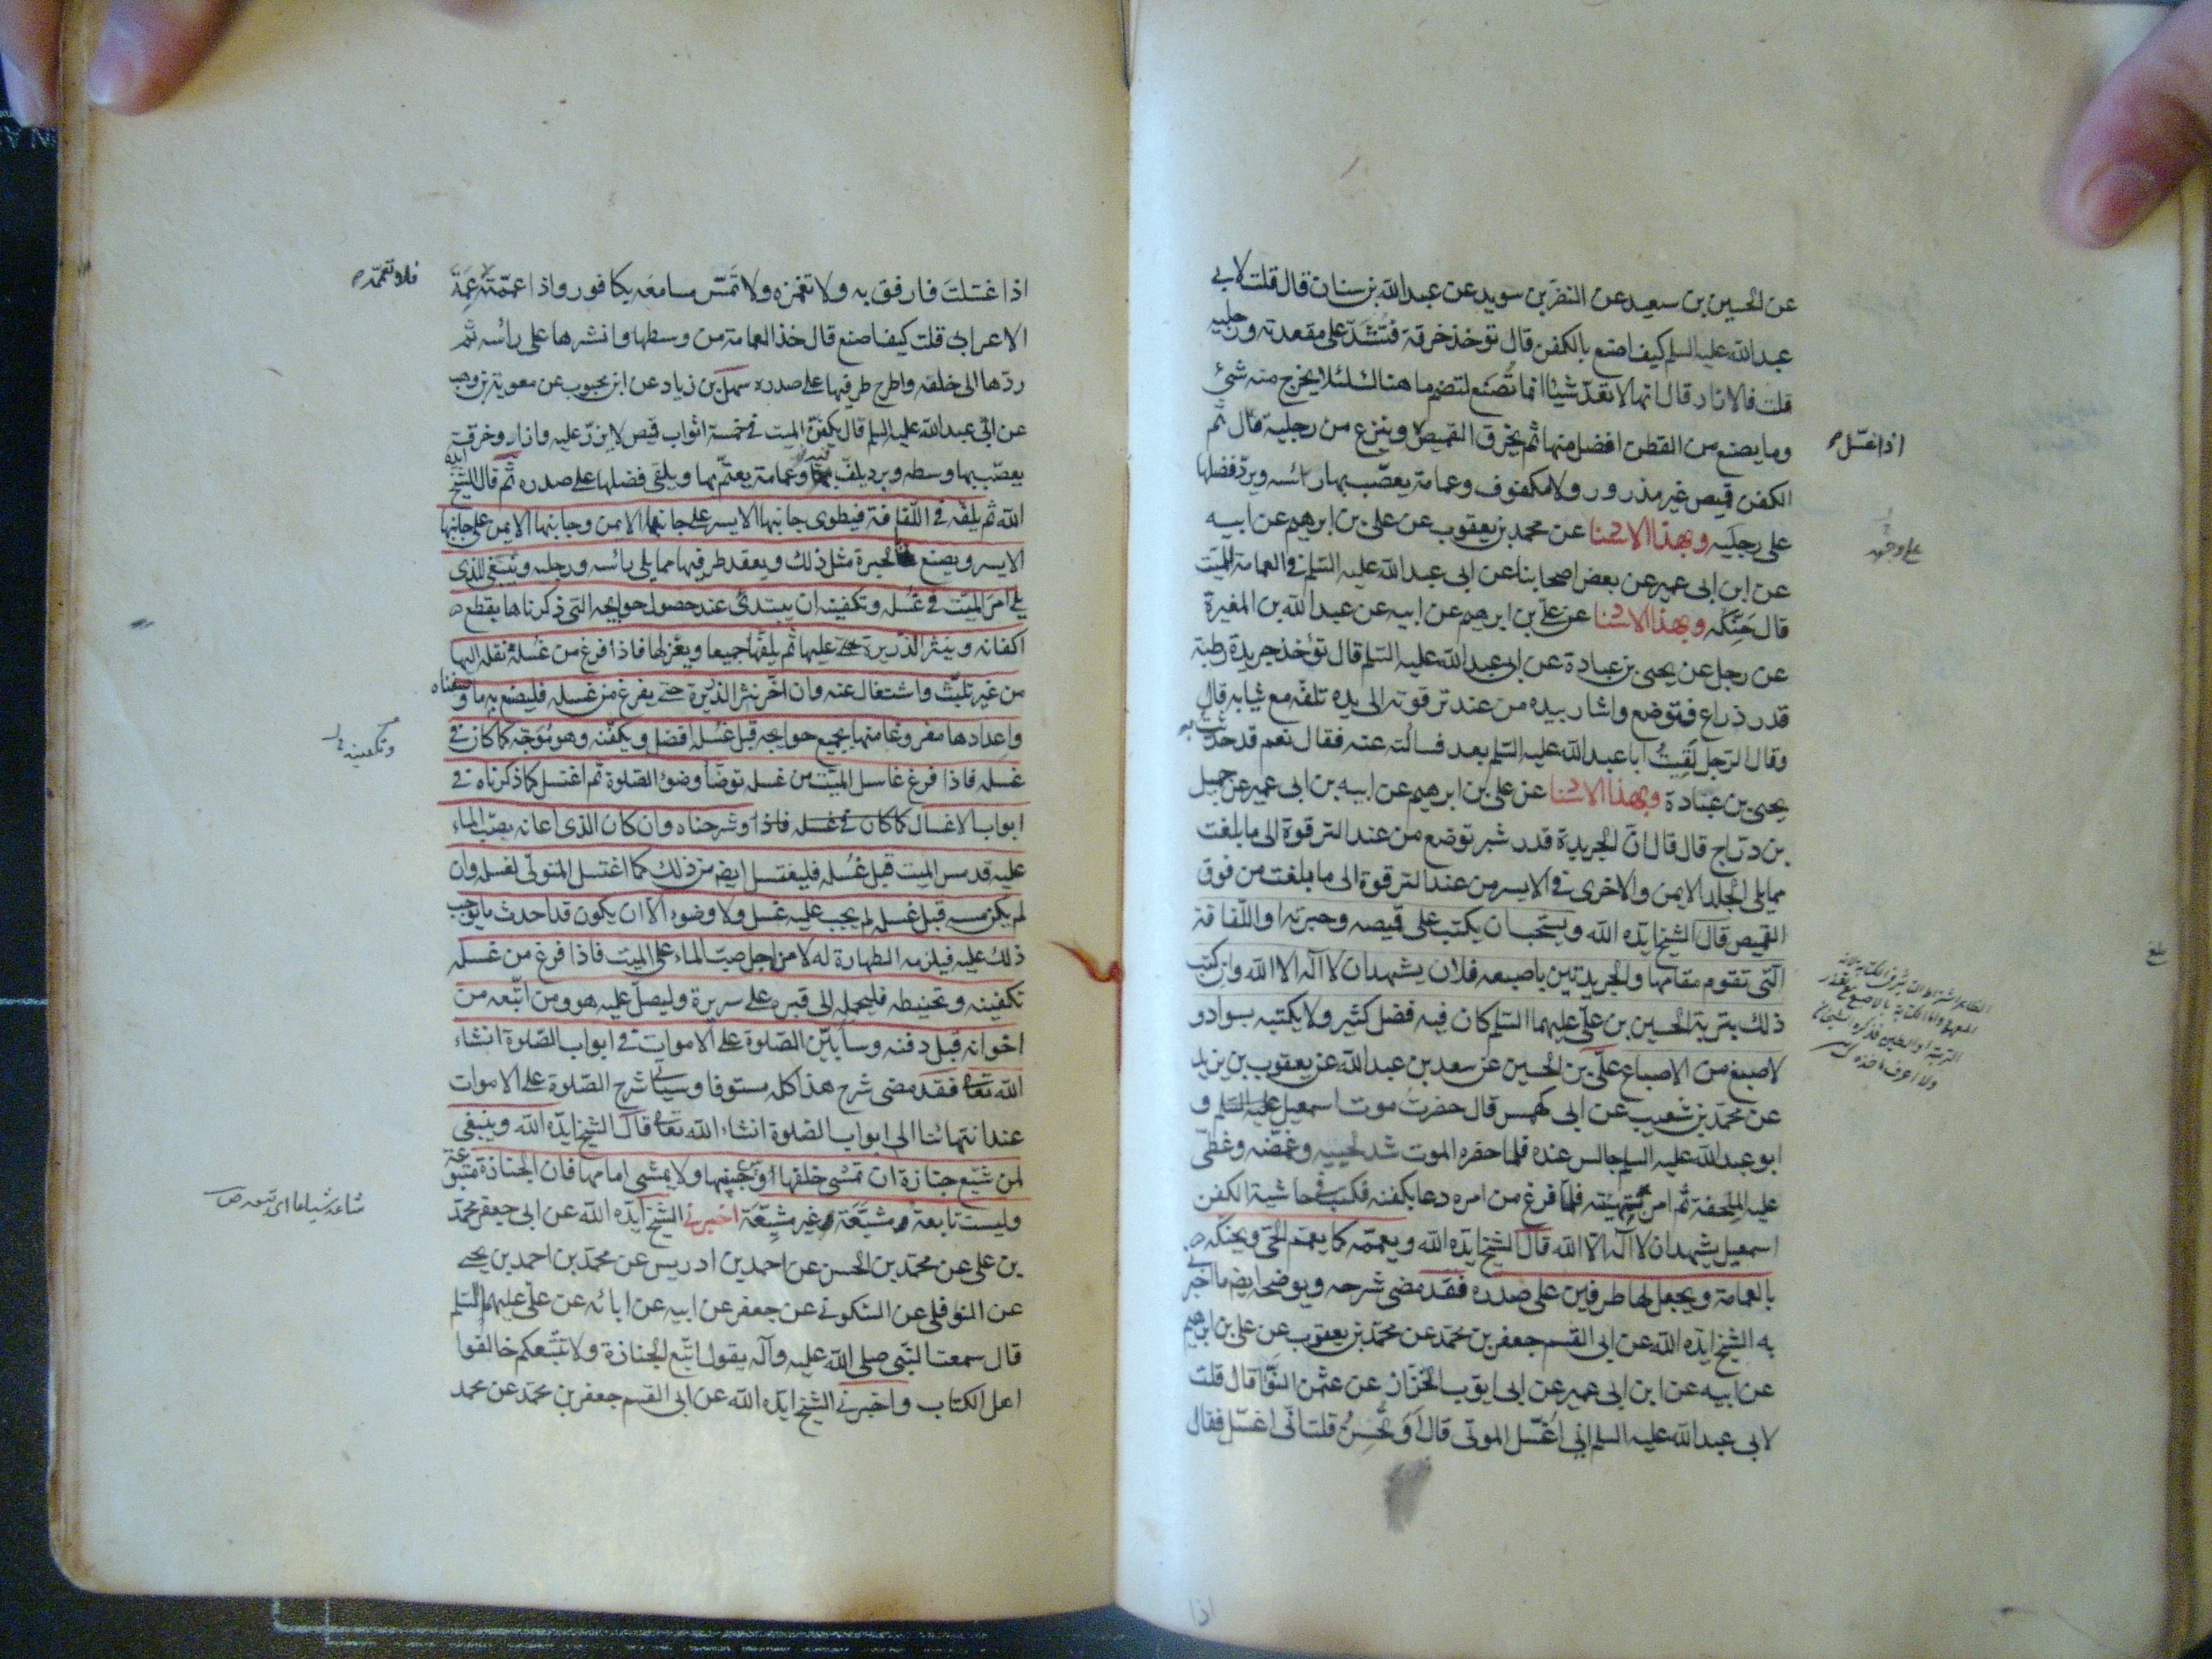 عن الحسين بن سعيد عن النضر بن سويد عن عبد الله بن سنان قال قلت لابي
عبد الله عليه السلم كيف اصنع بالكفن قال تؤخذ خرقة فتشد على مقعدته ورجليه
قلت فالازار قال انها لا تعد شيئا انما تصنع لتضم ما هناك لئلا يخرج منه شئ
وما يصنع من القطن افضل منها ثم يخرق القميص وينزع من رجليه قال ثم
اذا غسل
الكفن قميص غير مزرور ولا مكفوف وعمامة يعصب بها رائسه ويرد فضلها
على رجليه وبهذا الاسنا عن محمد بن يعقوب عن على بن ابرهيم عن ابيه
على وجهه
عن ابن ابى عمير عن بعض اصحابنا عن ابى عبد الله عليه السلم فى العمامة للميت
قال حنكه وبهذا الاسنا عن على بن ابرهيم عن ابيه عن عبد الله بن المغيرة
عن رجل عن يحيى بن عبادة عن ابى عبد الله عليه السلم قال تؤخذ جريدة رطبة
قدر ذراع فتوضع واشار بيده من عند ترقوته الى يده تلف مع ثيابه قال
وقال الرجل لقيت ابا عبد الله عليه السلم بعد فسالته عنه فقال نعم قد حدثت به
يحيى بن عبادة وبهذا الاسنا عن على بن ابرهيم عن ابيه بن ابى عمير عن جميل
بن دراج قال قال ان الجريدة قدر شبر توضع من عند الترقوة الى ما بلغت
مما يلى الجلد الايمن والاخرى فى الايسر من عند الترقوة الى ما بلغت من فوق
القميص قال الشيخ ايده الله ويستحب ان يكتب على قميصه وحبرته او اللفافة
التى تقوم مقامها والجريدتين باصبعه فلان يشهد ان لا اله الا الله وان كتب
ذلك بتربة الحسين بن على عليهما السلم كان فيه فضل كثير ولا يكتبه بسواد و
لا صبغ من الاصباع على بن الحسين عن سعد بن عبد الله عن يعقوب بن يزيد
عن محمد بن شعيب عن ابى كهمس قال حضرت موت اسمعيل عليه السلم و
ابو عبد الله عليه السلم جالس عنده فلما حضره الموت شد لحييه وغمضه وغطى
عليه الملحفة ثم امر بتهيئته فلما فرغ من امره دعا بكفنه فكتب فى حاشية الكفن
اسمعيل يشهد ان لا اله الا الله قال الشيخ ايده الله ويعممه كما يعمم الحى ويحنكه
بالعمامة ويجعل لها طرفين على صدره فقد مضى شرحه ويوضحه ايضا ما اخبرنى
به الشيخ ايده الله عن ابى القسم جعفر بن محمد عن محمد بن يعقوب عن على بن ابرهيم
عن ابيه عن ابن ابى عمير عن ابى ايوب الخزاز عن عثمن النوا قال قلت
لابى عبد الله عليه السلم انى اغسل الموتى قال او تحسن قلت انى اغسل فقال
اذا
اذا غسلت فارفق به ولا تغمزه ولا تمس مسامعه بكافور واذا عممته عمة
الاعرابى قلت كيف اصنع قال خذ العمامة من وسطها وانشرها على رائسه ثم
ردها الى خلفه واطرح طرفيها على صدره سهل بن زياد عن ابن محبوب عن معوية بن وهب
عن ابى عبد الله عليه السلم قال يكفن الميت فى خمسة اثواب قميص لا يزر عليه وازار وخرقة
يعصب بها وسطه وبرد يلف فيه وعمامة يعتم بها ويلقى فضلها على صدره ثم قال الشيخ ايده
الله ثم يلفه فى اللفافة فيطوى جانبها الايسر على جانبها الايمن وجانبها الايمن على جانبها
الايسر ويصنع بالحبرة مثل ذلك ويعقد طرفيها مما يلى رائسه ورجليه وينبغى للذى
يلى امر الميت فى غسله وتكفينه ان يبتدئ عند حصول حوايجه التى ذكرناها بقطع
اكفانه وينثر الذريرة عليها ثم يلفها جميعا ويعزلها فاذا فرغ من غسله نقله اليها
من غير تلبث واشتغال عنه وان اخر نثر الذريرة حتى يفرغ من غسله فليصنع به ما وصفناه
واعدادها مفروغا منها بجميع حوايجه قبل غسله افضل ويكفنه وهو موجه كما كان فى
وتكفينه
غسله فاذا فرغ غاسل الميت من غسله توضأ وضوء الصلوة ثم اغتسل كما ذكرناه فى
ابواب الاغسال كما كان فى غسله فاذا وشرحناه وان كان الذى اعانه بصب الماء
عليه قد مس الميت قبل غسله فليغتسل ايضا من ذلك كما اغتسل المتولى لغسله وان
لم يكن مسه قبل غسله لم يجب عليه غسل ولا وضوء الا ان يكون قد احدث ما يوجب
ذلك عليه فيلزمه الطهارة له لا من اجل صب الماء على الميت فاذا فرغ من غسله
تكفينه وتحنيطه فليحمله الى قبره على سريره وليصل عليه هو ومن اتبعه من
اخوانه قبل دفنه وسأبين الصلوة على الاموات فى ابواب الصلوة انشاء
الله تعا فقد مضى شرح هذا كله مستوفا وسياتى شرح الصلوة على الاموات
عند انتهائنا الى ابواب الصلوة انشاء الله تعا قال الشيخ ايده الله وينبغى
لمن شيع جنازة ان تمشى خلفها او بجنبيها ولا يمشى امامها فان الجنازة متبوعة
وليست تابعة ومشيعة غير مشيعة اخبرنى الشيخ ايده الله عن ابى جعفر محمد
بن على عن محمد بن الحسن عن احمد بن ادريس عن محمد بن احمد بن يحيى
عن النوفلى عن السكونى عن جعفر عن ابيه عن ابائه عن على عليهم السلم
قال سمعت النبى صلى الله عليه وآله يقول اتبع الجنازة ولا تتبعكم خالفوا
اهل الكتاب واخبرنى الشيخ ايده الله عن ابى القسم جعفر بن محمد عن محمد